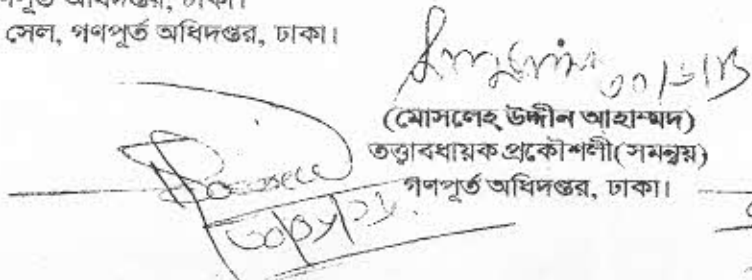 গণপূর্ত অধিদপ্তর, ঢাকা।
সেল, গণপূর্ত অধিদপ্তর, ঢাকা।
(মোসলেহ্ উদ্দীন আহাম্মদ)
তত্ত্বাবধায়ক প্রকৌশলী(সমন্বয়)
গণপূর্ত অধিদপ্তর, ঢাকা।